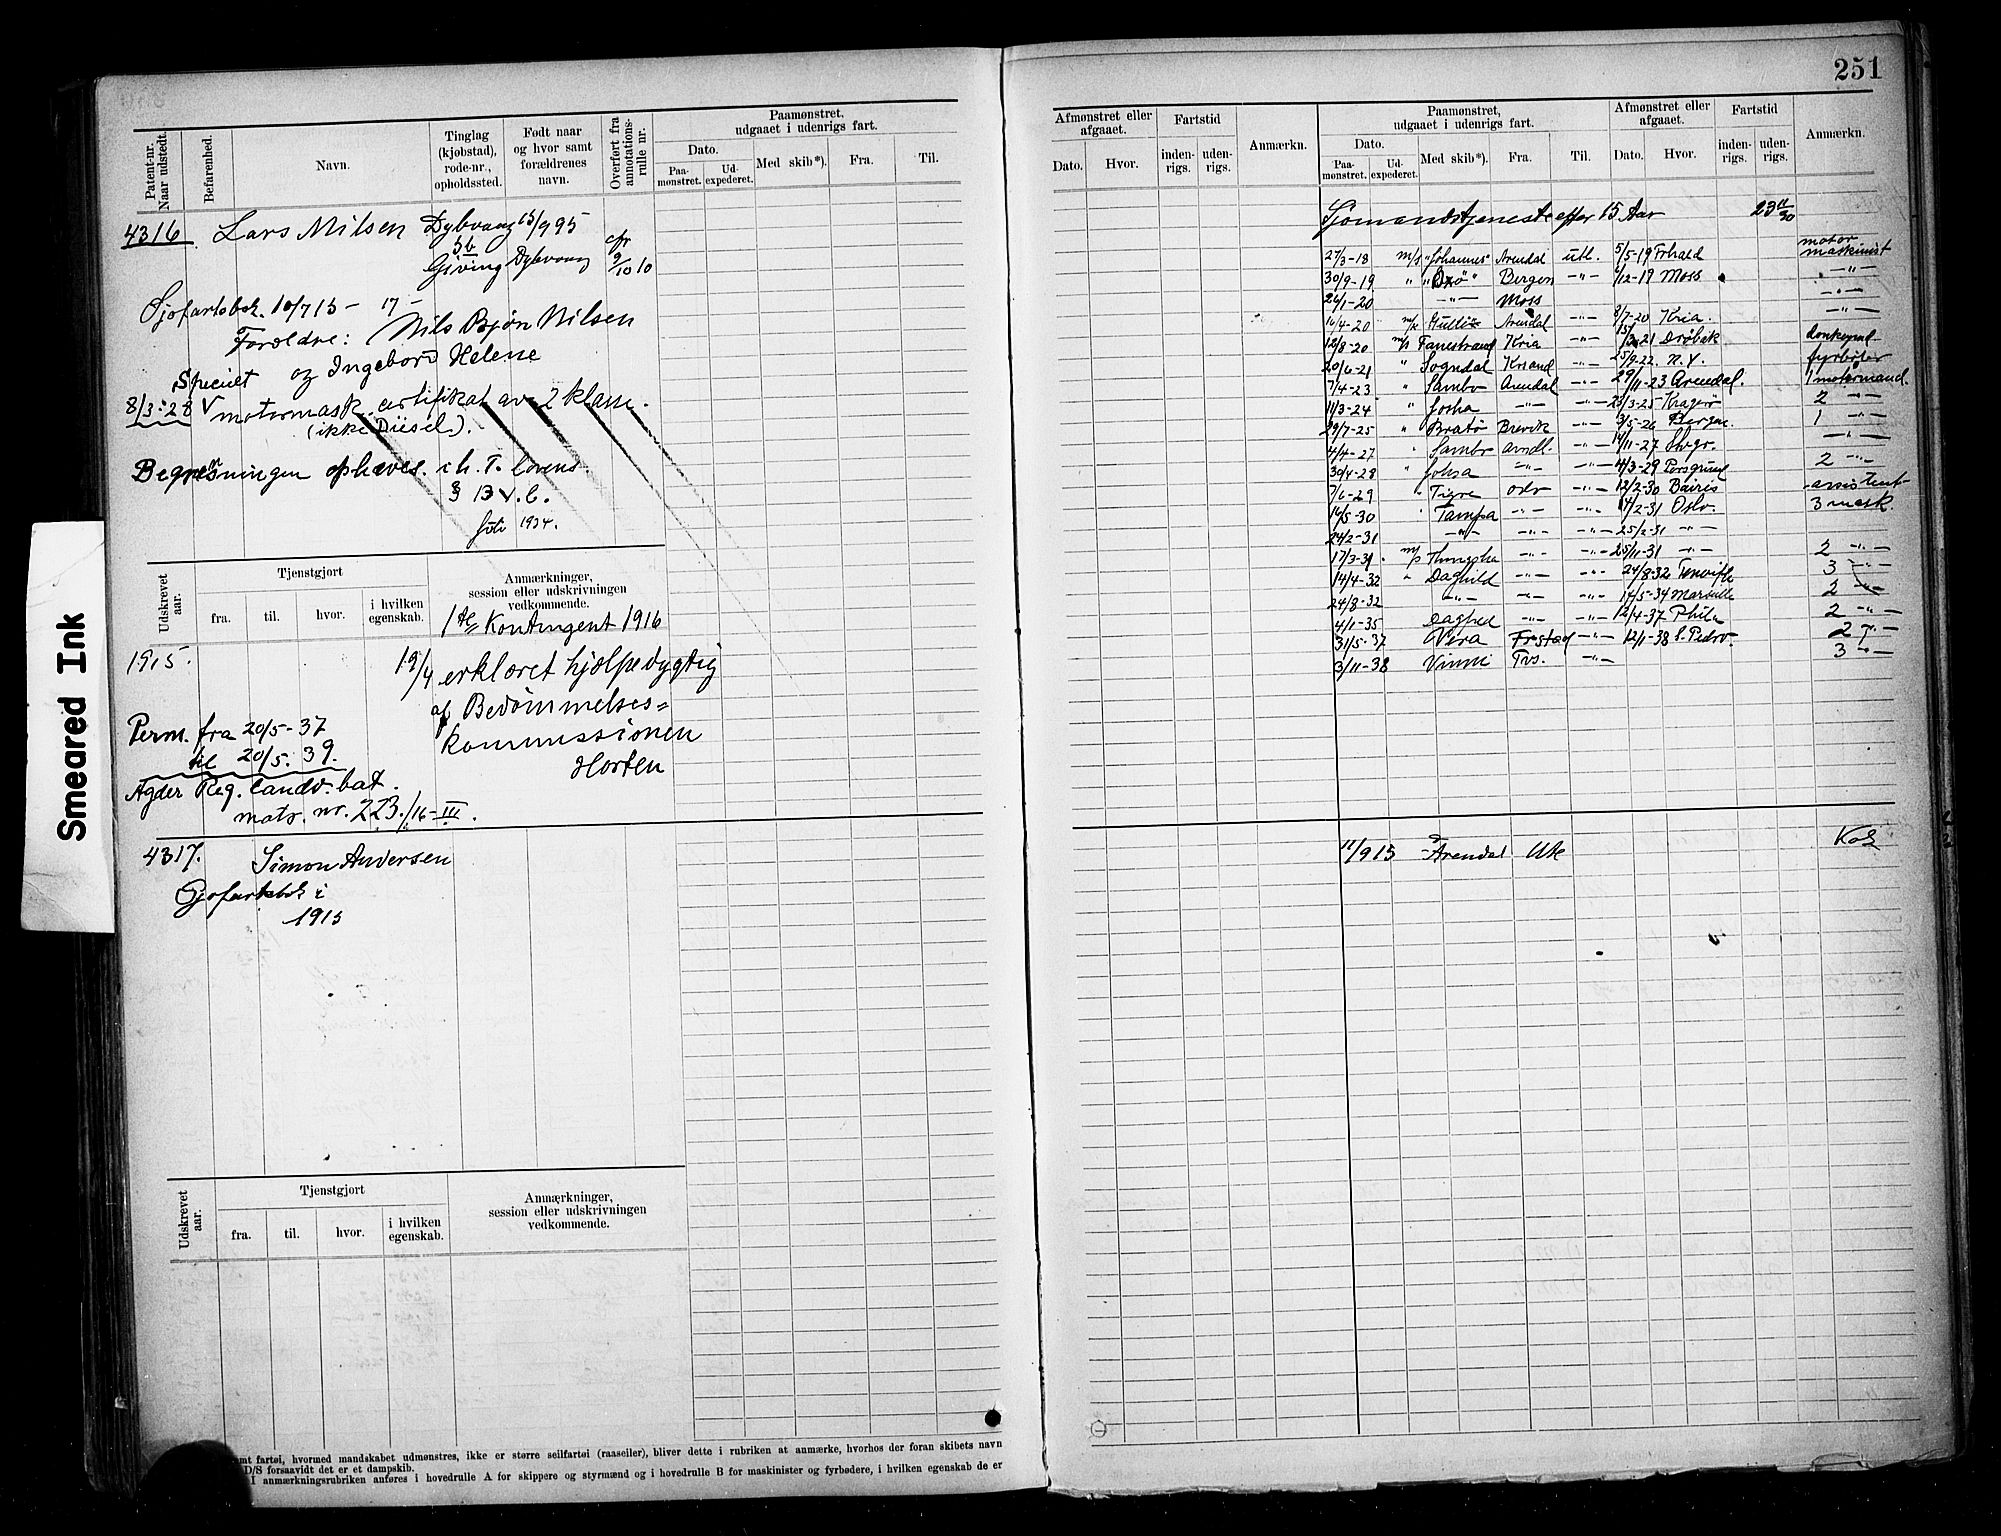 Smeared Ink
251
Patent-nr. Naar udstedt.
Befarenhed.
Navn.
Tinglag (kjøbstad), rode-nr., opholdssted.
Født naar og hvor samt forældrenes navn.
Overført fra annotations-rulle nr.
Paamønstret, udgaaet i udenrigs fart.
Dato.
Paa-mønstret.
Ud-expederet.
Med skib*).
Fra.
Til.
4316
Lars Nilsen
Dybvaag
15/9 95
5b
Giving
Dybvaag
9/10 10
Sjøfartsbok 10/7 15 - 17 -
Forældre: Nils Bjørn Nilsen
og Ingebord Helene
Specielt
8/3 - 28 motormask. certifikat av 2 klasse.
(ikke Diesel).
Begrensningen ophæves.
1934.
Udskrevet aar.
Tjenstgjort
fra.
til.
hvor.
i hvilken egenskab.
Anmærkninger, session eller udskrivningen vedkommende.
1ste Kontingent 1916
1915.
erklæret hjælpedygtig
af Bedømmelses=
kommissionen
Horten
Perm. fra 20/5-37
til 20/5. 39.
Agder Reg. landv. bat.
matr. nr. 223./16-III.
4317.
Simon Andersen
Sjøfartsbok i
1915
Udskrevet aar.
Tjenstgjort
fra.
til.
hvor.
i hvilken egenskab.
Anmærkninger, session eller udskrivningen vedkommende.
mt fartøi, hvormed mandskabet udmønstres, ikke er større seilfartøi (raaseiler), bliver dette i rubriken at anmærke, hvorhos der foran skibets navn
D/S forsaavidt det er et dampskib.
I anmærkningsrubriken anføres i hovedrulle A for skippere og styrmænd og i hovedrulle B for maskinister og fyrbødere, i hvilken egenskab de er
Afmønstret eller afgaaet.
Dato.
Hvor.
Fartstid
inden-rigs.
uden-rigs.
Anmærkn.
Paamønstret, udgaaet i udenrigs fart.
Dato.
Paa-mønstret.
Ud-expederet.
Med skib*).
Fra.
Til.
Afmønstret eller afgaaet.
Dato.
Hvor.
Fartstid
inden-rigs.
uden-rigs.
Anmærkn.
Sjømandstjeneste efter 15 Aar
27/3-18 m/s "Johannes" Arendal utl. 5/5-19 motor maskinist
30/9-19 " Bergen -"- 1/12-19 Moss -"-
26/1-20 -"- Moss -"-
16/4-20 Arendal -"- 8/7-20 Kria. -"-
12/8-20 m/s Fanestrand Kria -"- Drøbak
20/6-21 " Sogndal Krsand -"- 25/9-22 N.Y. fyrbøter
7/4-23 " Sambo Arendal -"- 29/11-23 Arendal. 1 motormand.
11/3-24 " -"- -"- 23/3-25 Kragerø 2 -"-
29/7-25 " Bratø Brevik -"- 3/5-26 Bergen 1 -"-
4/4-27 " Arndl. -"- 14/11-27 -"-
30/4-28 " -"- -"- 4/3-29 Porsgrund 2 -"-
7/6-29 " Tigre Oslo -"- 12/2-30 assistent
16/5-30 " Tampa -"- -"- 14/2-31 Oslo. 3 mask.
24/2-31 -"- 25/2-31 -"-
17/3-31 -"- -"- 25/11-31 -"- 2 -"-
14/4-32 " Daghild -"- -"- 24/8-32 3 -"-
24/8-32 -"- -"- -"- 14/5-34 2 -"-
4/1-35 -"- -"- 12/4-37 Phila 2 -"-
31/5-37 Vera Frstad -"- 12/1-38 S. Pedro. 2 -"-
3/11-38 Vinni Tvs. -"- 3 -"-
11/9 15 Arendal Utl.